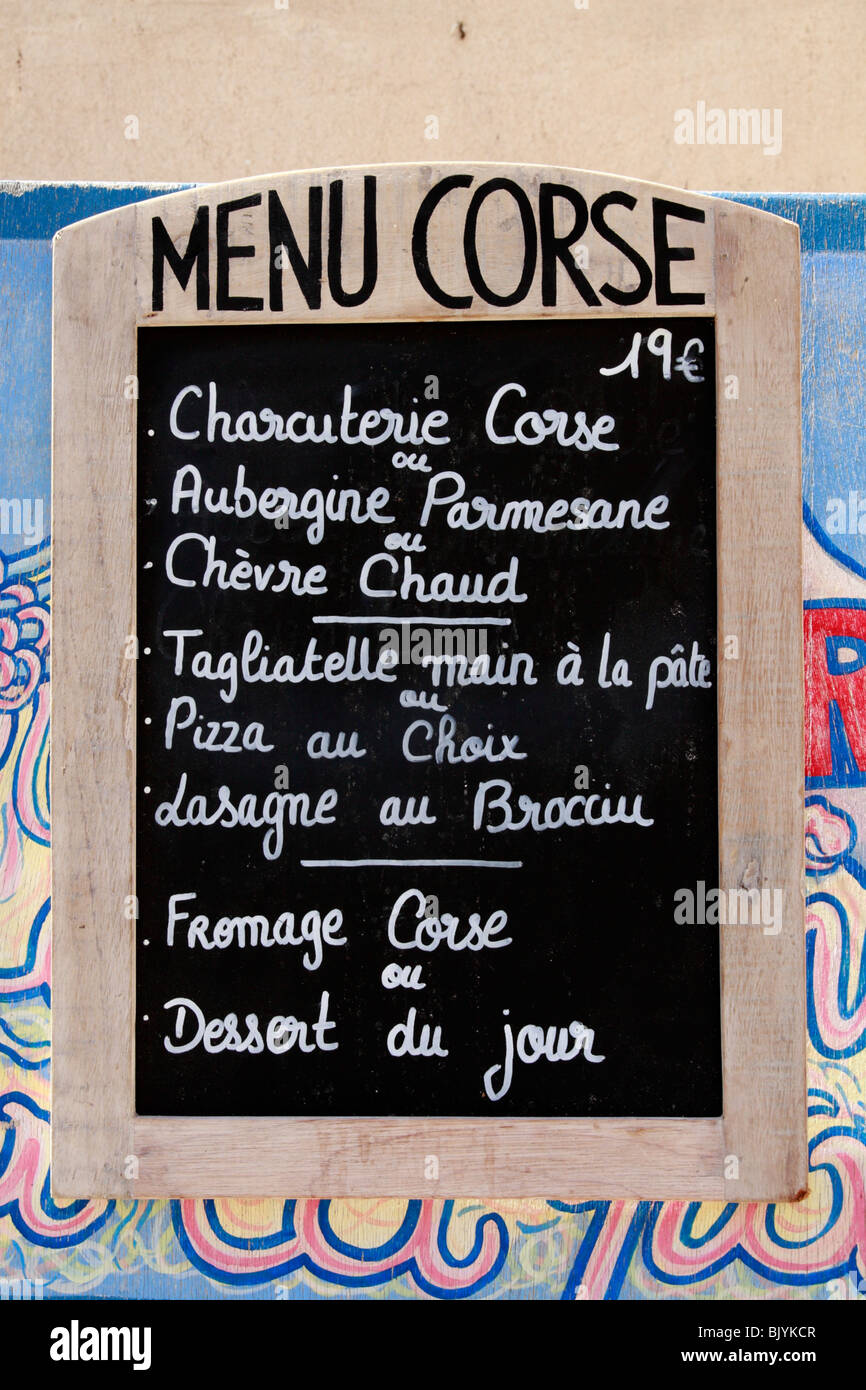 MENU CORSE
19€
Charcuterie Corse
ou
Aubergine Parmesane
ou
Chèvre Chaud
Tagliatelle main à la pâte
ou
Pizza au Choix
Lasagne au Brocciu
Fromage Corse
ou
Dessert du jour
R
alamy
Image ID: BJYKCR
www.alamy.com